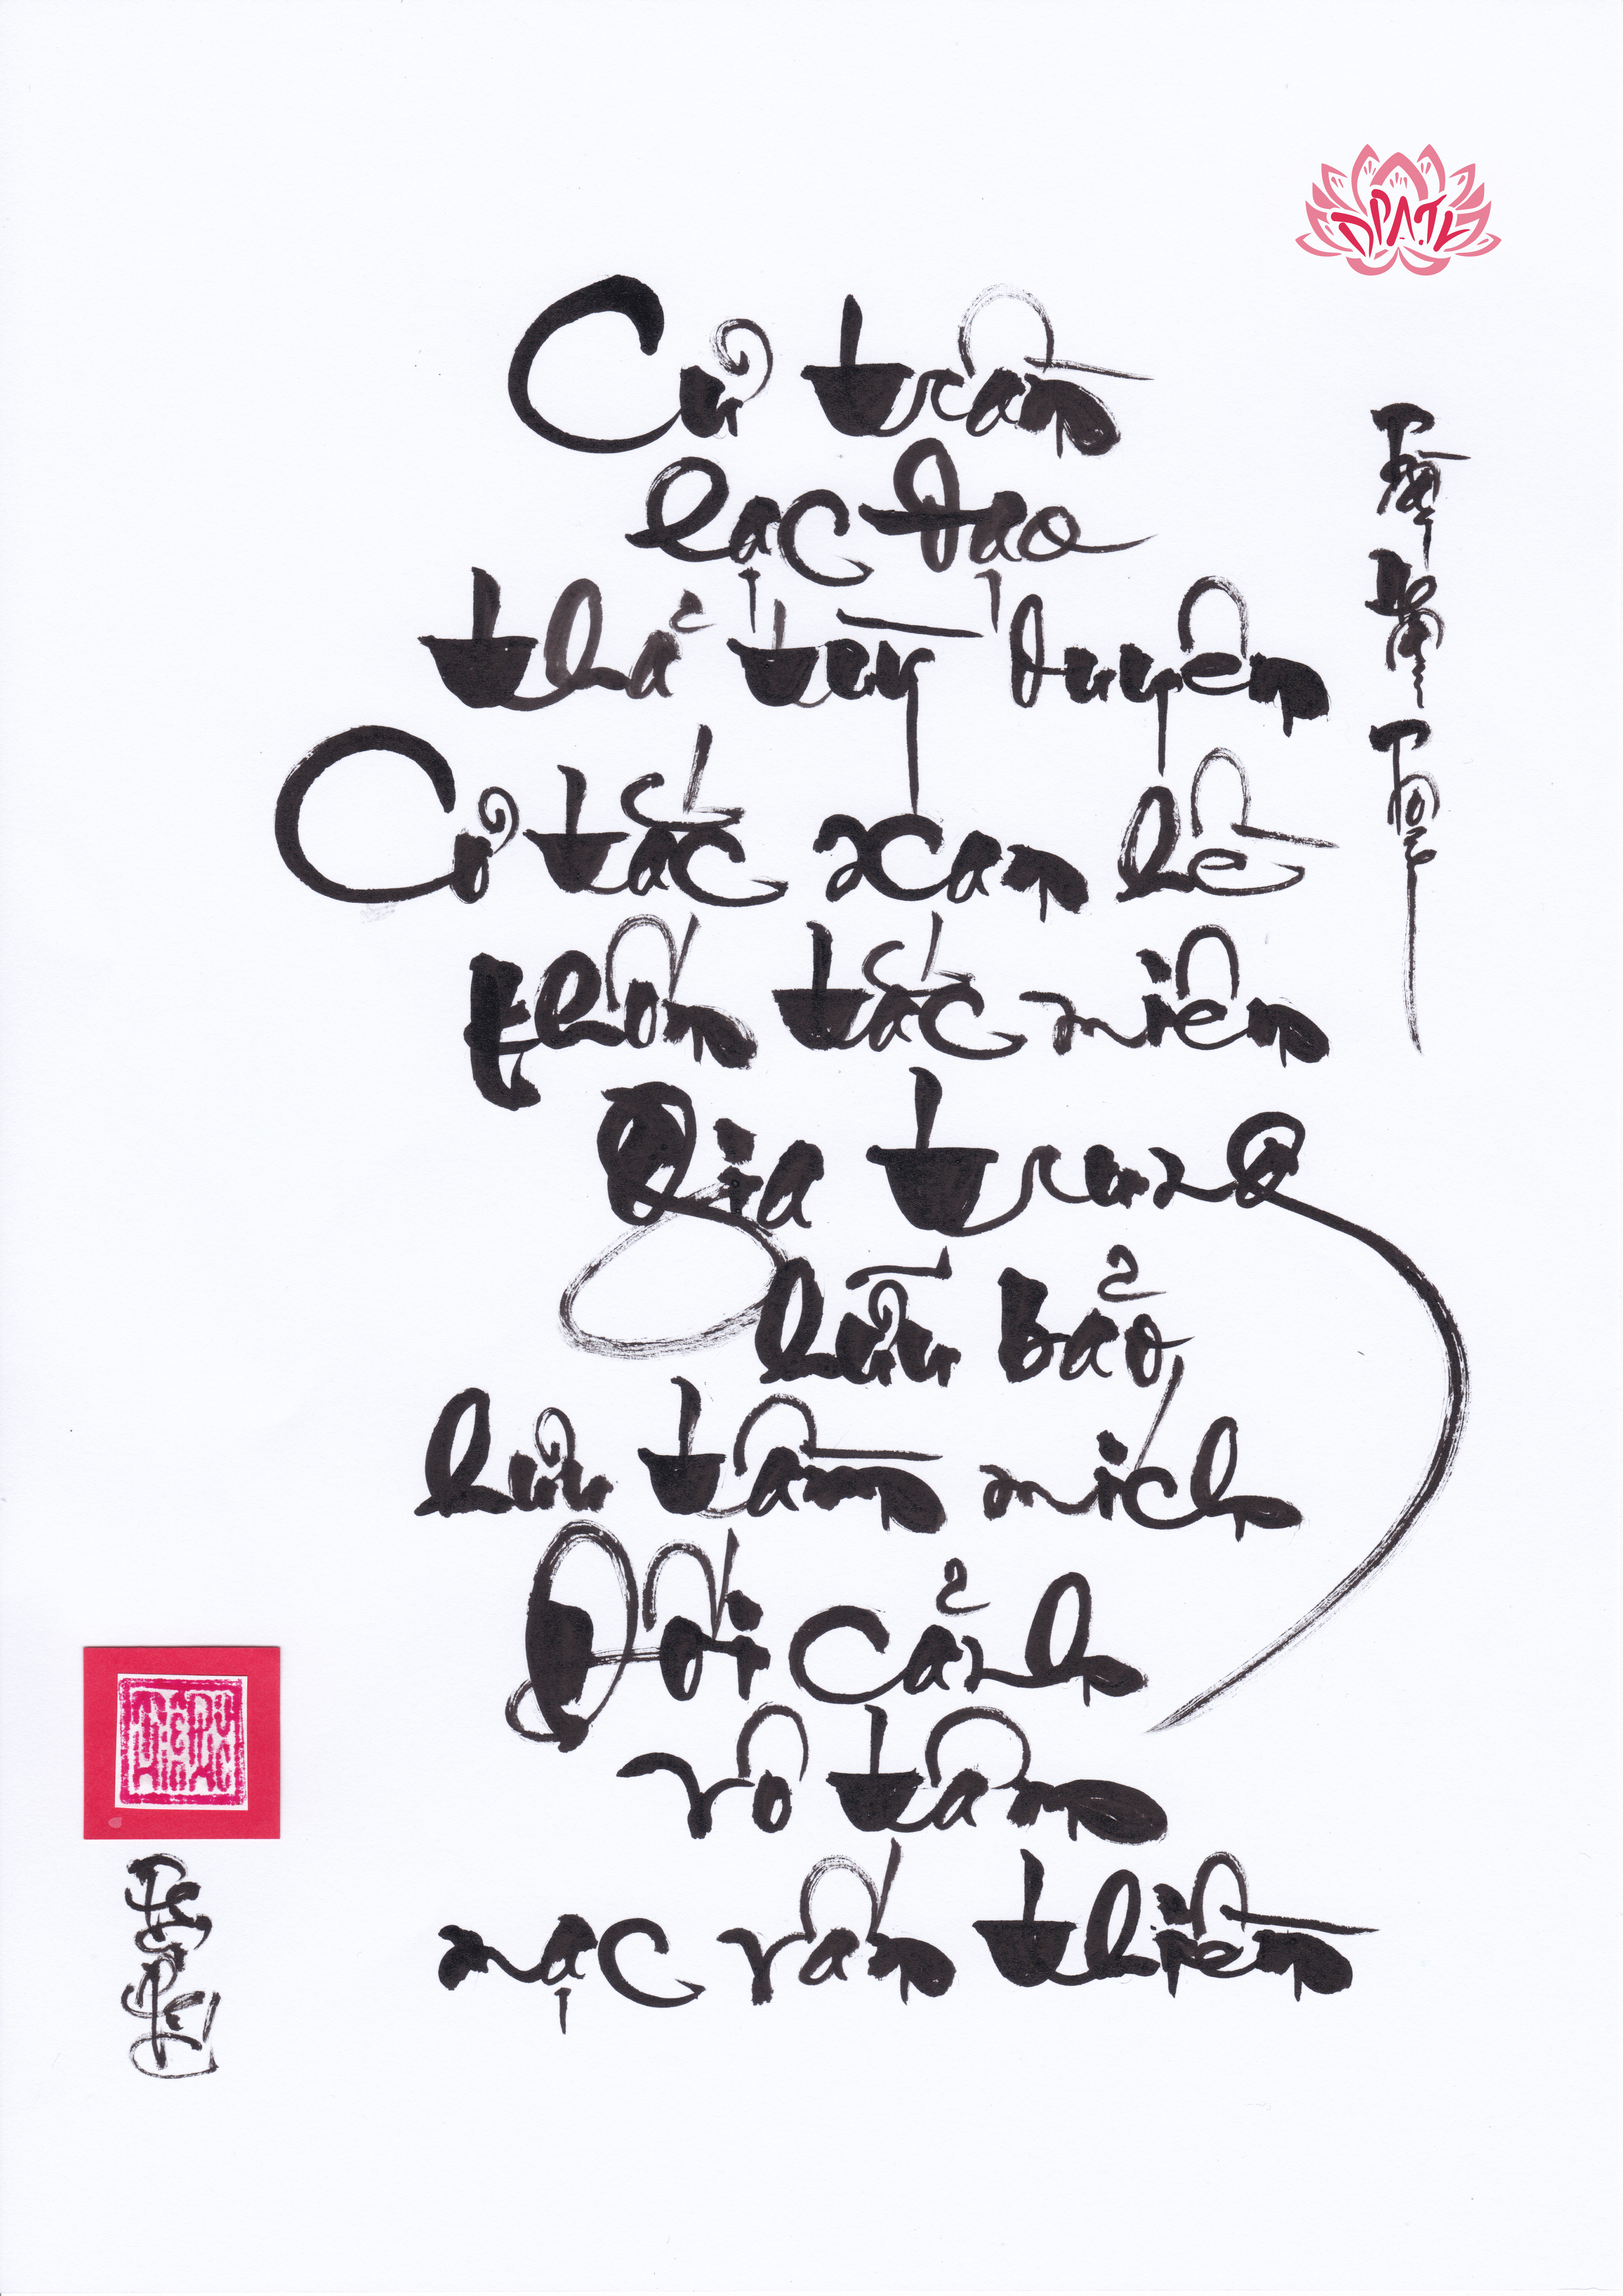 DPATL
Cư trần
lạc đạo
thả tùy duyên
Cơ tắc xan hề
khốn tắc miên
Gia trung
hữu bảo
hưu tầm mích
Đối cảnh
vô tâm
mạc vấn thiền
Trần Nhân Tông